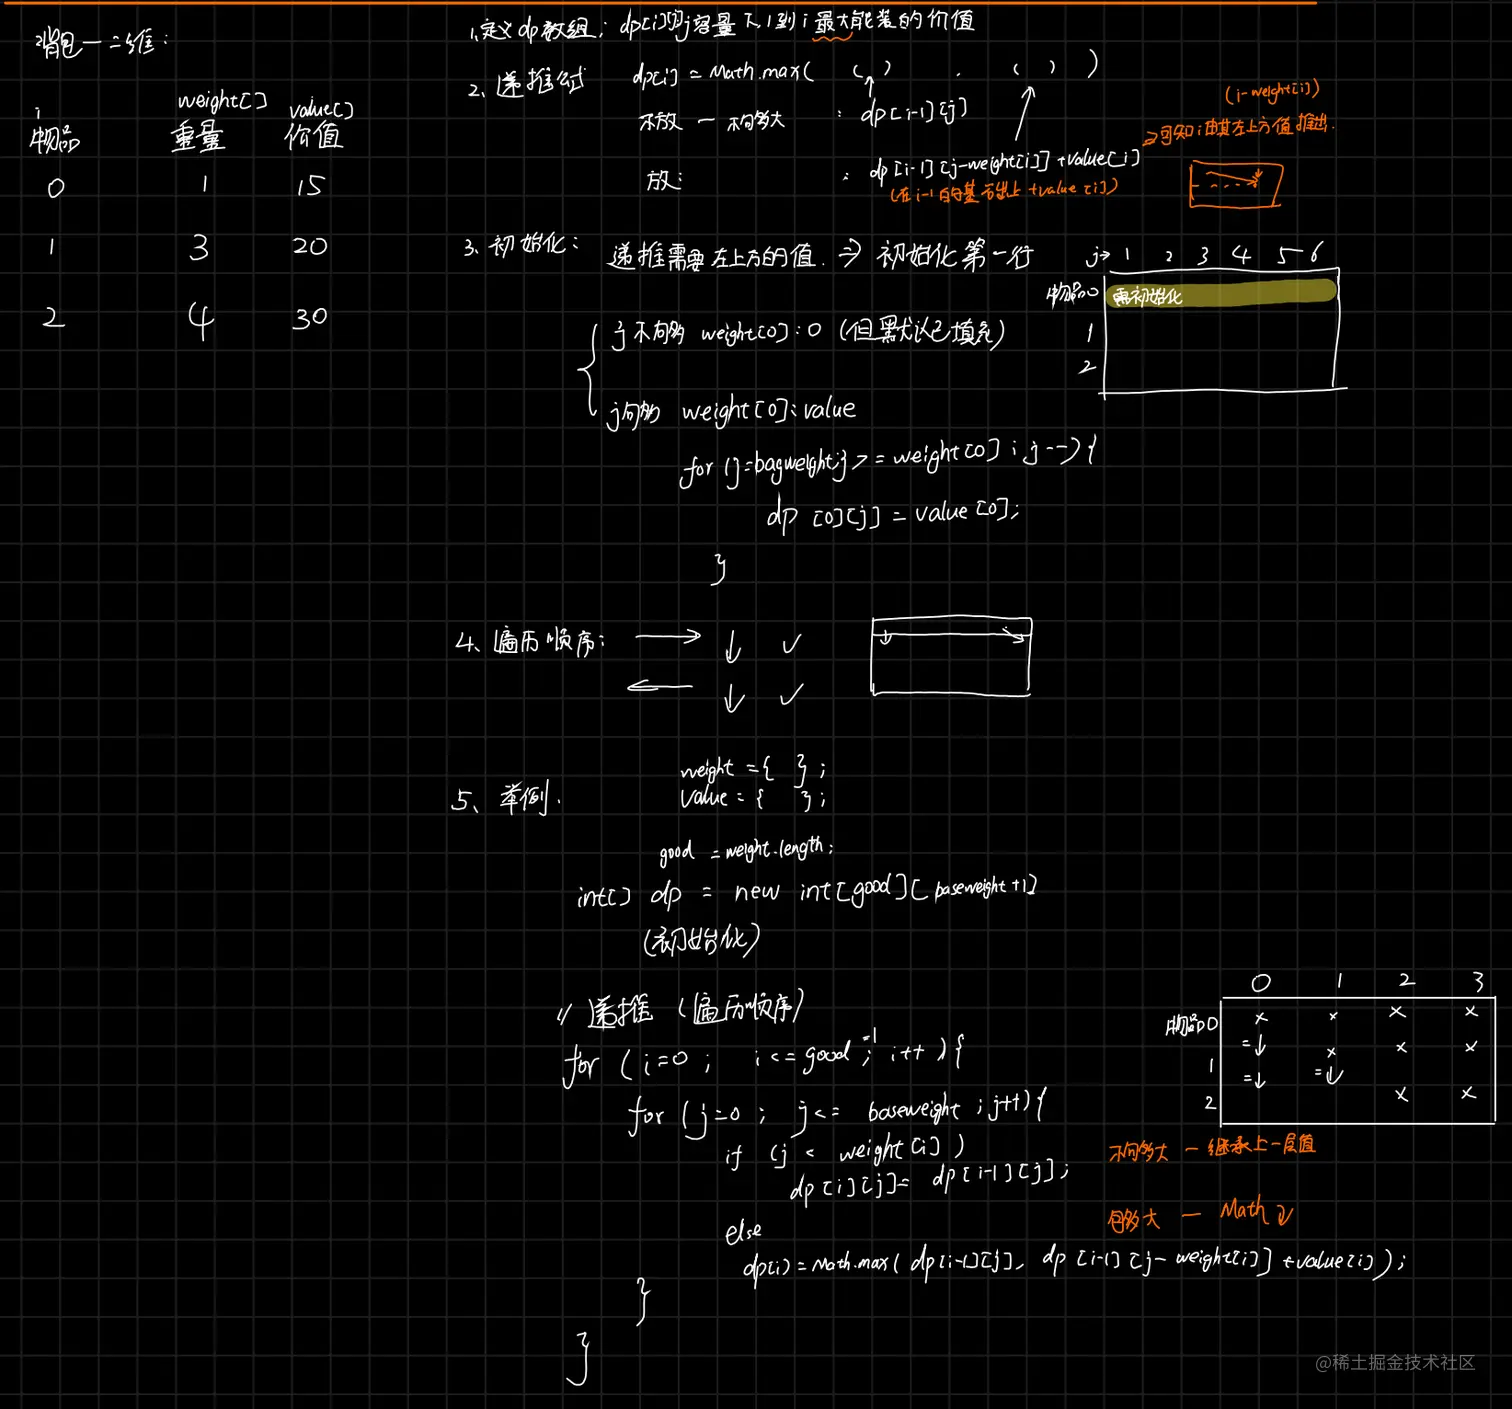 背包一二维:
i
物品
weight[]
重量
value[]
价值
0 1 15
1 3 20
2 4 30
1.定义dp数组: dp[i][j]容量下 1到i最大能装的价值
2、递推公式 dp[i] = Math.max( ( ) , ( ) )
不放 一 不够大 : dp[i-1][j]
放: : dp[i-1][j-weight[i]]+value[i]
(在i-1的基础上+value[i])
(i-weight[i])
⇒可知i由其左上方值推出.
3、初始化: 递推需要左上方的值. ⇒ 初始化第一行
j→ 1 2 3 4 5 6
物品0 需初始化
1
2
j不够 weight[0]:0 (但默认已填充)
j够 weight[0]:value
for (j=bagweight;j>=weight[0];j--){
dp [0][j] = value[0];
}
4、遍历顺序: → ↓ ✓
← ↓ ✓
5、举例.
weight={ };
value={ };
good =weight.length;
int[] dp = new int[good][baseweight+1]
(初始化)
// 递推 (遍历顺序)
for (i=0; i<=good-1; i++){
for (j=0; j<= baseweight ;j++){
if (j < weight[i])
dp[i][j]= dp[i-1][j];
else
dp[i]=Math.max(dp[i-1][j], dp[i-1][j-weight[i]]+value[i]);
}
}
0 1 2 3
物品0 × × × ×
=↓
1 × × ×
=↓ =↓
2 × ×
不够大 一 继承上一层值
够大 一 Math↓
@稀土掘金技术社区